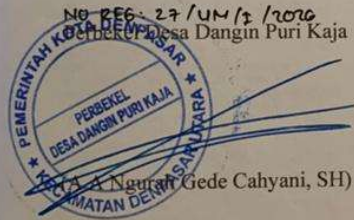 NO REG: 27/UM/I/2026
Perbekel Desa Dangin Puri Kaja
PEMERINTAH KOTA DENPASAR
PERBEKEL
DESA DANGIN PURI KAJA
KECAMATAN DENPASAR UTARA
(A.A Ngurah Gede Cahyani, SH)